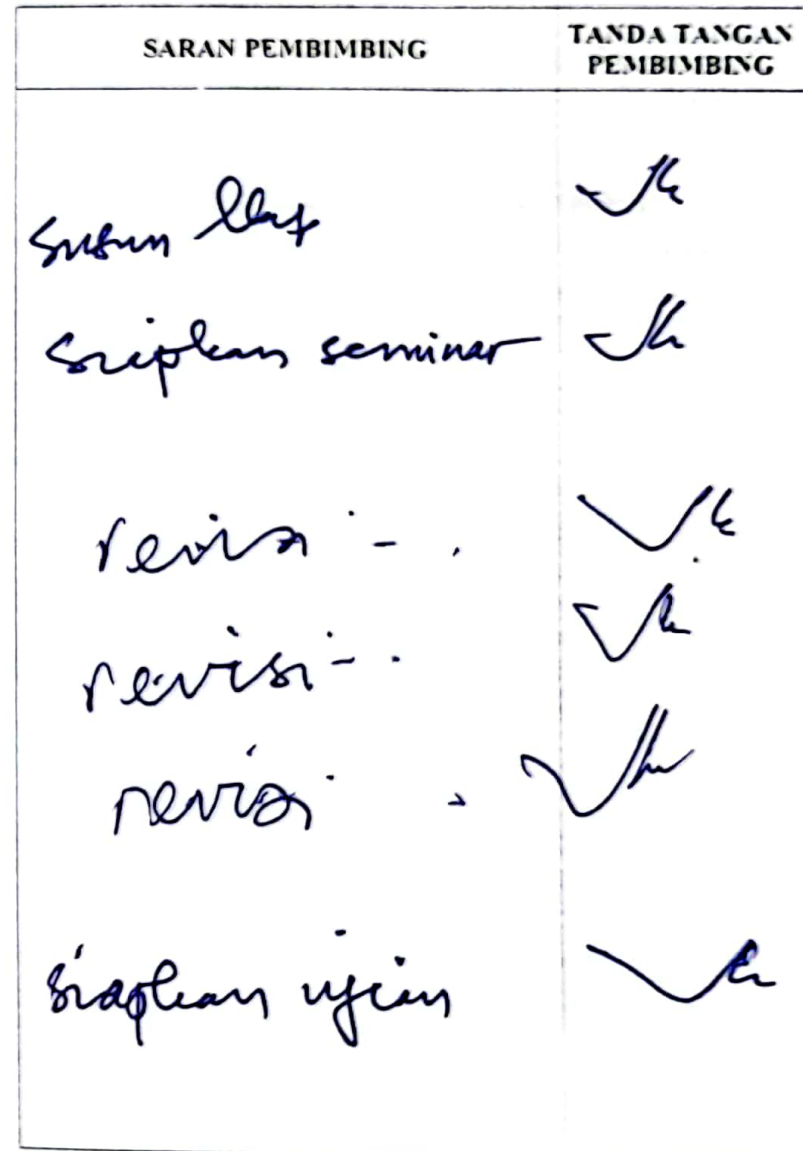 SARAN PEMBIMBING
TANDA TANGAN
PEMBIMBING
susun
siapkan seminar
revisi - .
revisi - .
revisi .
siapkan ujian